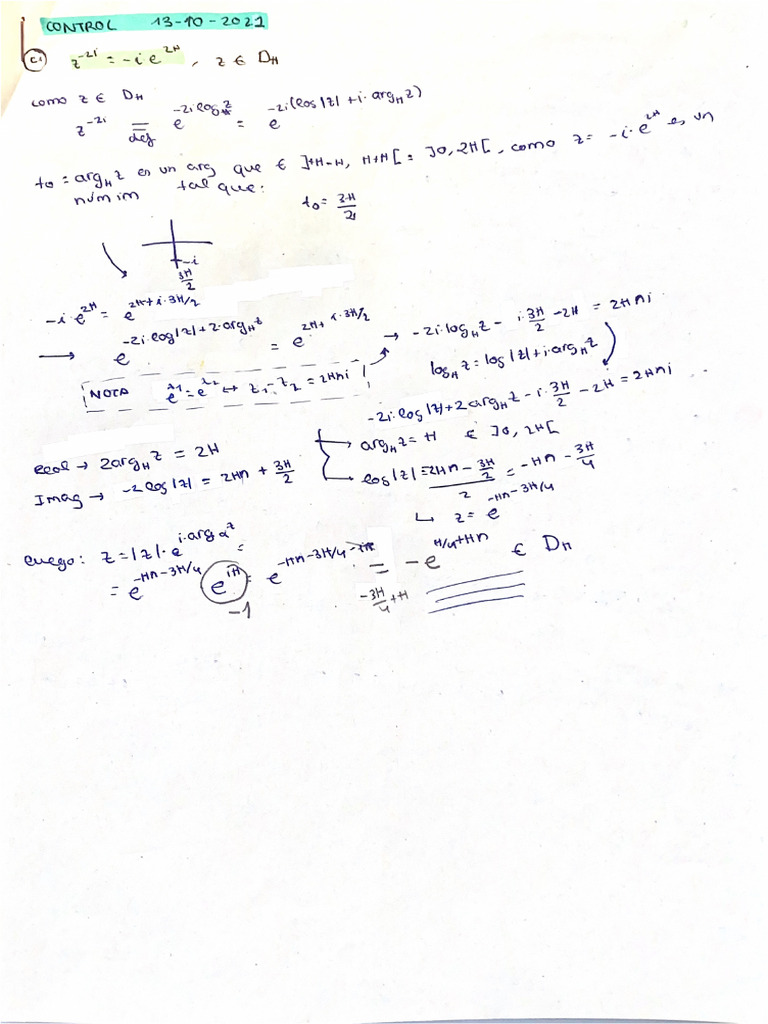 CONTROL 13-10-2021
C.1 z^{-2i} = -i e^{2π}, z ∈ D_π
como z ∈ D_π
z^{-2i} =_{def} e^{-2i log_π z} = e^{-2i(log|z| + i·arg_π z)}
t_0 = arg_π z es un arg que ∈ ]π-π, π+π[ = ]0, 2π[, como z = -i·e^{2π} es un
núm im tal que: t_0 = 3π/2
-i
3π/2
-i·e^{2π} = e^{2π + i·3π/2}
→ e^{-2i·log|z| + 2·arg_π z} = e^{2π + i·3π/2} → -2i·log_π z - i·3π/2 - 2π = 2πni
NOTA e^{z_1} = e^{z_2} ↔ z_1 - z_2 = 2πni
log_π z = log|z| + i·arg_π z
-2i·log|z| + 2arg_π z - i·3π/2 - 2π = 2πni
Real → 2arg_π z = 2π
Imag → -2log|z| = 2πn + 3π/2
→ arg_π z = π ∈ ]0, 2π[
→ log|z| = 2πn - 3π/2 / 2 = -πn - 3π/4
↳ z = e^{-πn - 3π/4}
luego: z = |z|·e^{i·arg_α z} =
= e^{-πn - 3π/4} e^{iπ} = e^{-πn - 3π/4 - iπ} = -e^{π/4 + πn} ∈ D_π
-1
-3π/4 + π